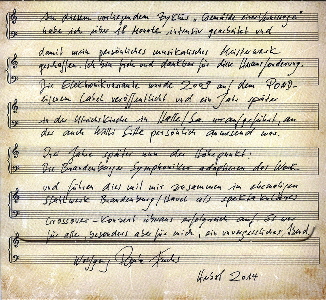 An diesem vorliegenden Zyklus "Gemälde einer
habe ich über 18 Monate intensiv gearbeitet und
damit mein persönliches musikalisches Meisterwerk
geschaffen. Ich bin froh und dankbar für diese Herausforderung.
Die Elektronikvariante wurde 2003 auf dem
eigenen Label veröffentlicht und ein Jahr später
in der Ulrichskirche in Halle/Sa. voraufgeführt, an
der auch Willi Sitte persönlich anwesend war.
Drei Jahre später nun der Höhepunkt:
Die Brandenburger Symphoniker adaptieren das Werk
und führen dies mit mir zusammen im ehemaligen
Stahlwerk Brandenburg/Havel als spektakuläres
Crossover-Konzert überaus erfolgreich auf. Es war
für alle, besonders aber für mich, ein unvergesslicher Abend
Wolfgang Fuchs
Herbst 2014